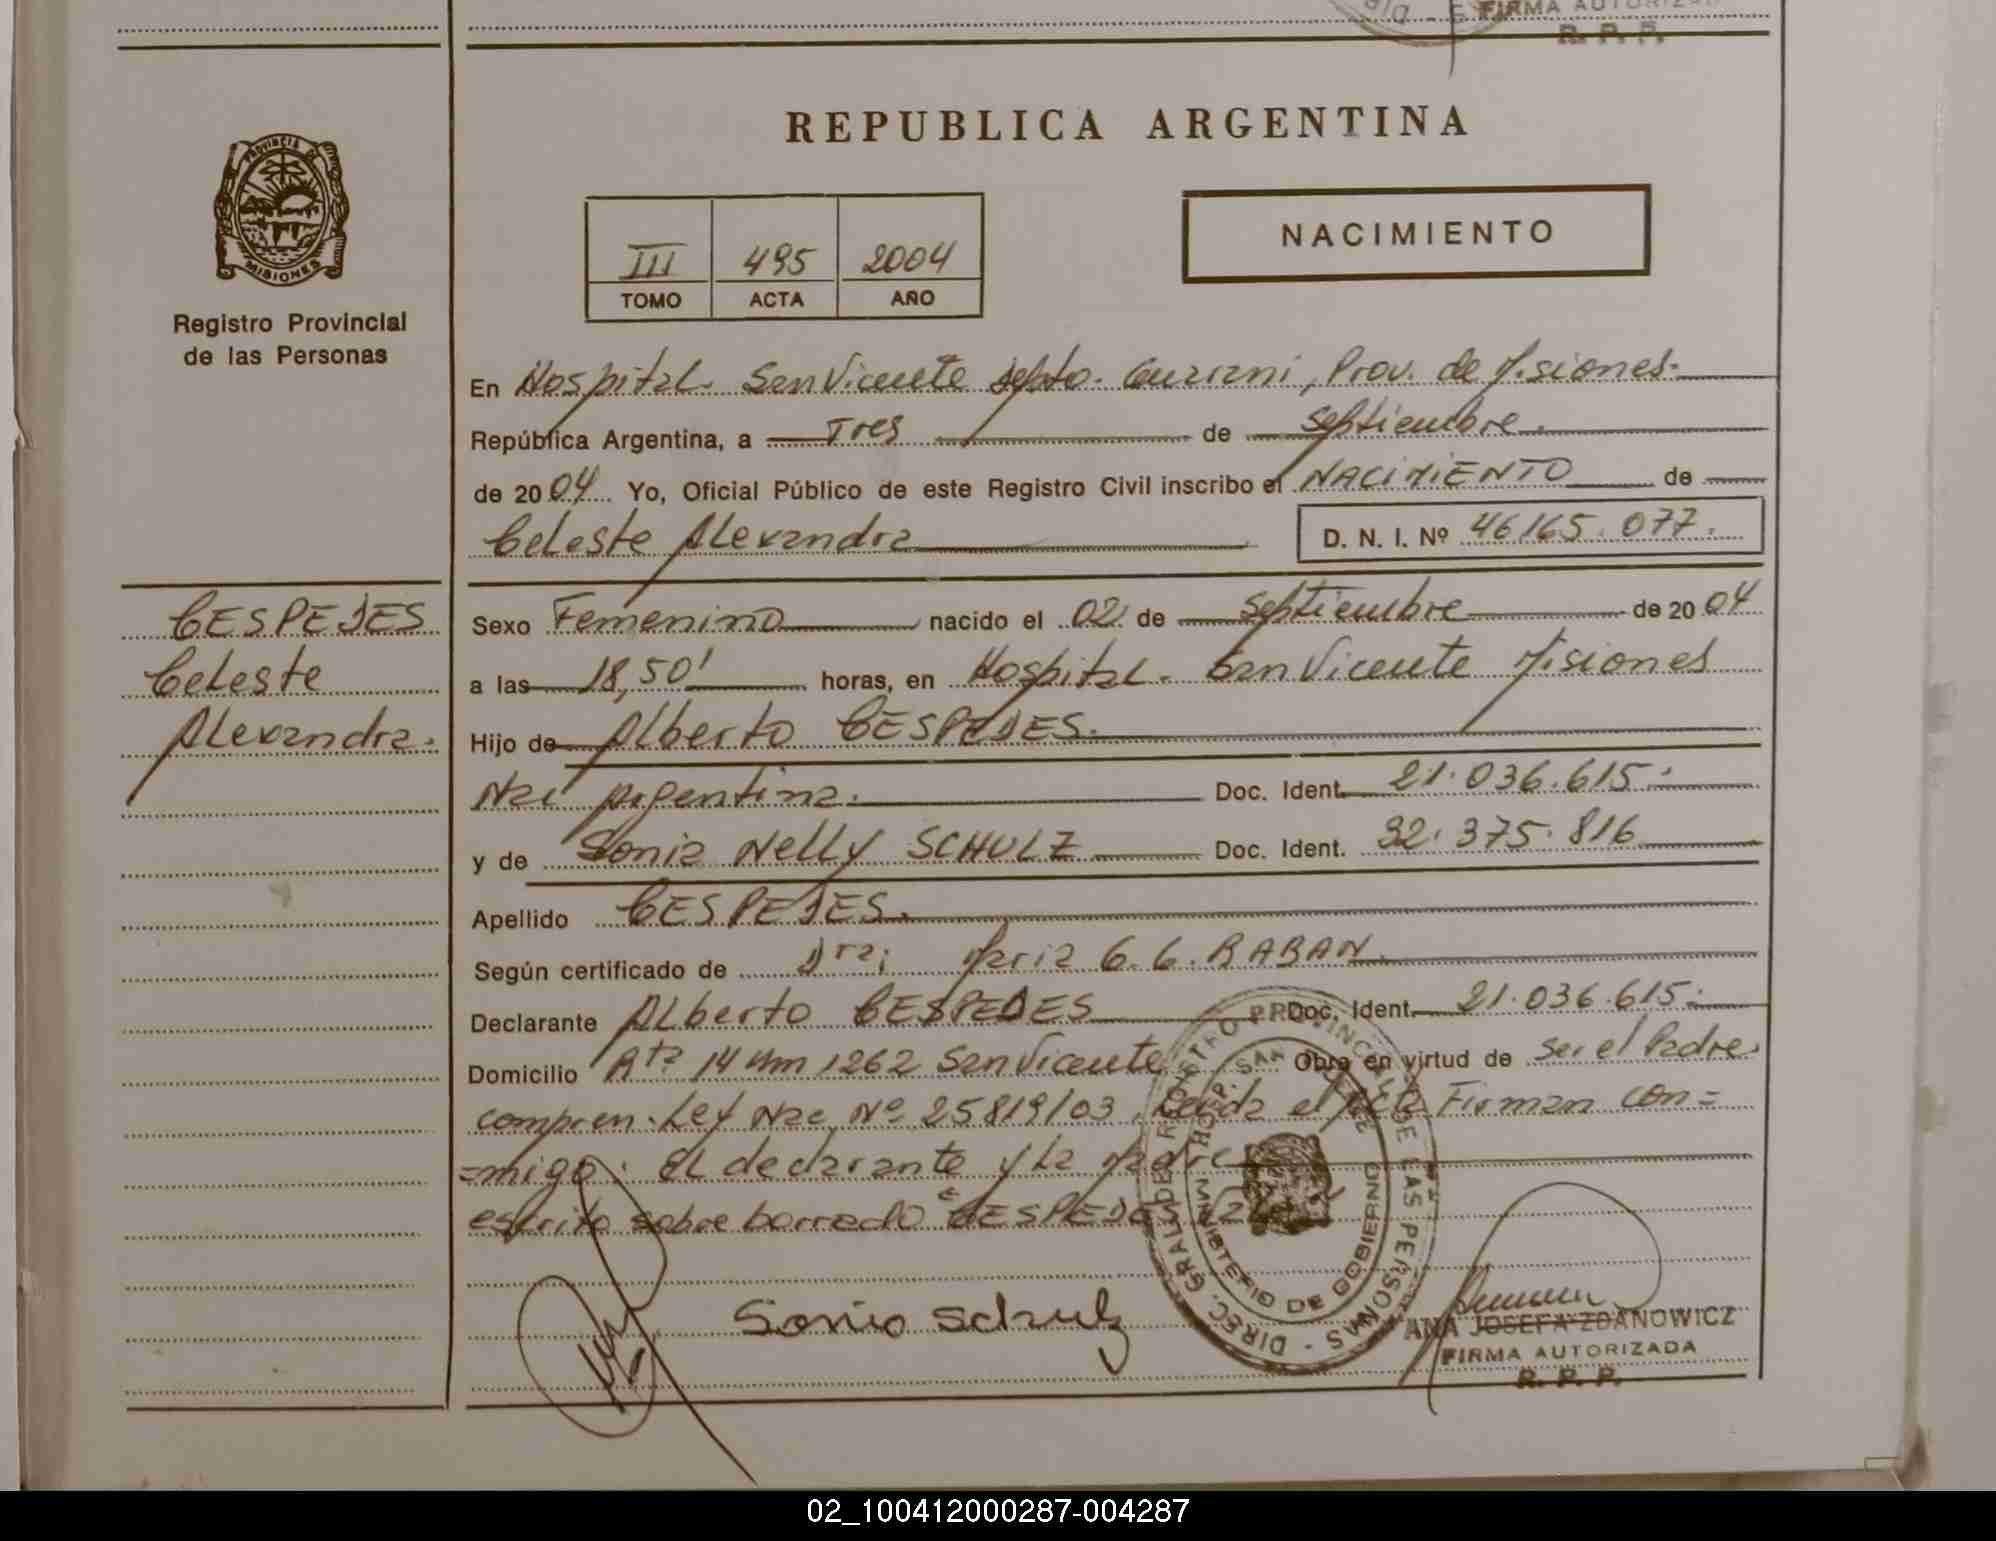 FIRMA AUTORIZADA
R. P. P.
REPUBLICA ARGENTINA
PROVINCIA DE
MISIONES
Registro Provincial
de las Personas
III 495 2004
TOMO ACTA AÑO
NACIMIENTO
En Hospital. San Vicente Dpto. Guarani, Prov. de Misiones.
República Argentina, a Tres de Septiembre.
de 2004 Yo, Oficial Público de este Registro Civil inscribo el NACIMIENTO de
Celeste Alexandra D. N. I. Nº 46165.077.
CESPEDES
Celeste
Alexandra.
Sexo Femenino nacido el 02 de Septiembre de 2004
a las 18,50' horas, en Hospital. San Vicente Misiones
Hijo de Alberto CESPEDES.
Nac Argentina. Doc. Ident. 21.036.615.
y de Sonia Nelly SCHULZ Doc. Ident. 32.375.816
Apellido CESPEDES.
Según certificado de Dra; Maria G. G. RABAN.
Declarante Alberto CESPEDES Doc. Ident. 21.036.615.
Domicilio Rta 14 Km 1262 San Vicente Obra en virtud de ser el Padre.
compren. Ley Nac Nº 25819/03, Leida el Acta Firman con=
=migo. El declarante y La Madre
escrito sobre borrado CESPEDES
Sonia Schulz
DIREC. GRAL. DE REGISTRO PROVINCIAL DE LAS PERSONAS
MINISTERIO DE GOBIERNO
ANA JOSEFA ZDANOWICZ
FIRMA AUTORIZADA
R. P. P.
02_100412000287-004287